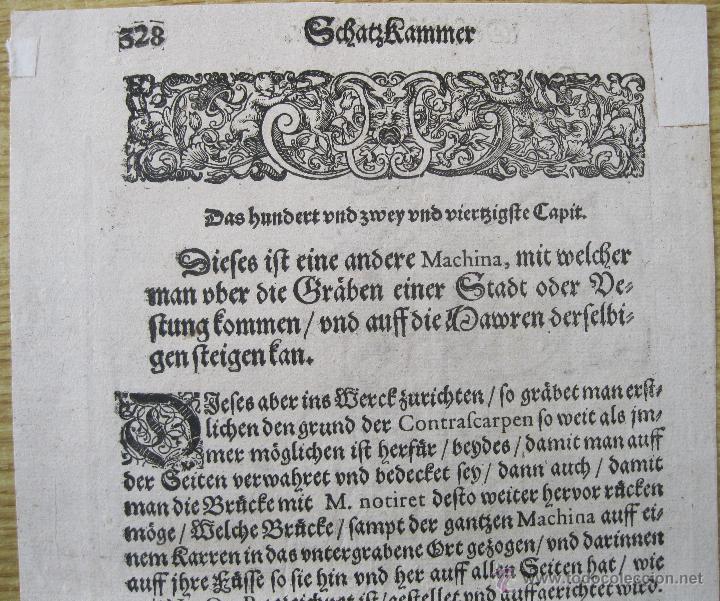 328
Schatzkammer
Das hundert vnd zwey vnd viertzigste Capit.
Dieses ist eine andere Machina, mit welcher
man vber die Gräben einer Stadt oder Ve-
stung kommen / vnd auff die Mawren derselbi-
gen steigen kan.
DIeses aber ins Werck zurichten / so gräbet man erst-
lichen den grund der Contrascarpen so weit als jm-
mer möglichen ist herfür / beydes / damit man auff
der Seiten verwahret vnd bedecket sey / dann auch / damit
man die Brücke mit M. notiret desto weiter hervor rücken
möge / Welche Brücke / sampt der gantzen Machina auff ei-
nem Karren in das vntergrabene Ort gezogen / vnd darinnen
auff jhre Füsse so sie hin vnd her auff allen Seiten hat / wie
gestellet vnd auffgerichtet wird.
© todocoleccion.net